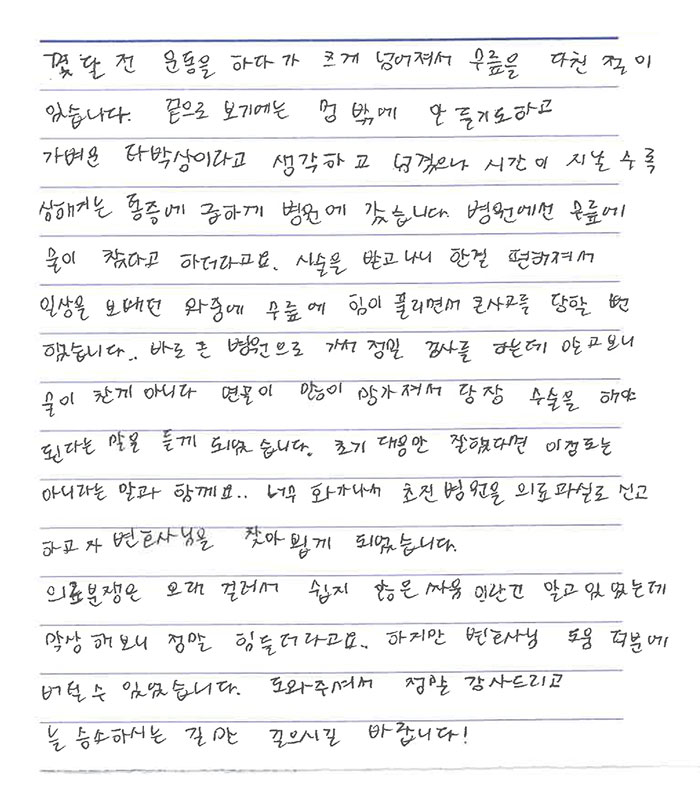 몇 달 전 운동을 하다가 크게 넘어져서 무릎을 다친 적이
있습니다. 겉으로 보기에는 멍 밖에 안 들기도하고
가벼운 타박상이라고 생각하고 넘겼으나 시간이 지날 수록
상해지는 통증에 급하게 병원에 갔습니다. 병원에선 무릎에
물이 찼다고 하더라고요. 시술을 받고나니 한결 편해져서
일상을 보내던 와중에 무릎에 힘이 풀리면서 큰사고를 당할 번
했습니다.. 바로 큰 병원으로 가서 정밀 검사를 하는데 알고보니
물이 찬게 아니다 연골이 많이 망가져서 당장 수술을 해야
된다는 말을 듣게 되었습니다. 초기 대응만 잘했다면 이정도는
아니라는 말과 함께요.. 너무 화가나서 초진병원을 의료과실로 신고
하고자 변호사님을 찾아 뵙게 되었습니다.
의료분쟁은 오래 걸려서 쉽지 않은 싸움이란건 알고있었는데
막상 해보니 정말 힘들더라고요.. 하지만 변호사님 도움 덕분에
버틸 수 있었습니다. 도와주셔서 정말 감사드리고
늘 승소하시는 길만 걸으시길 바랍니다!